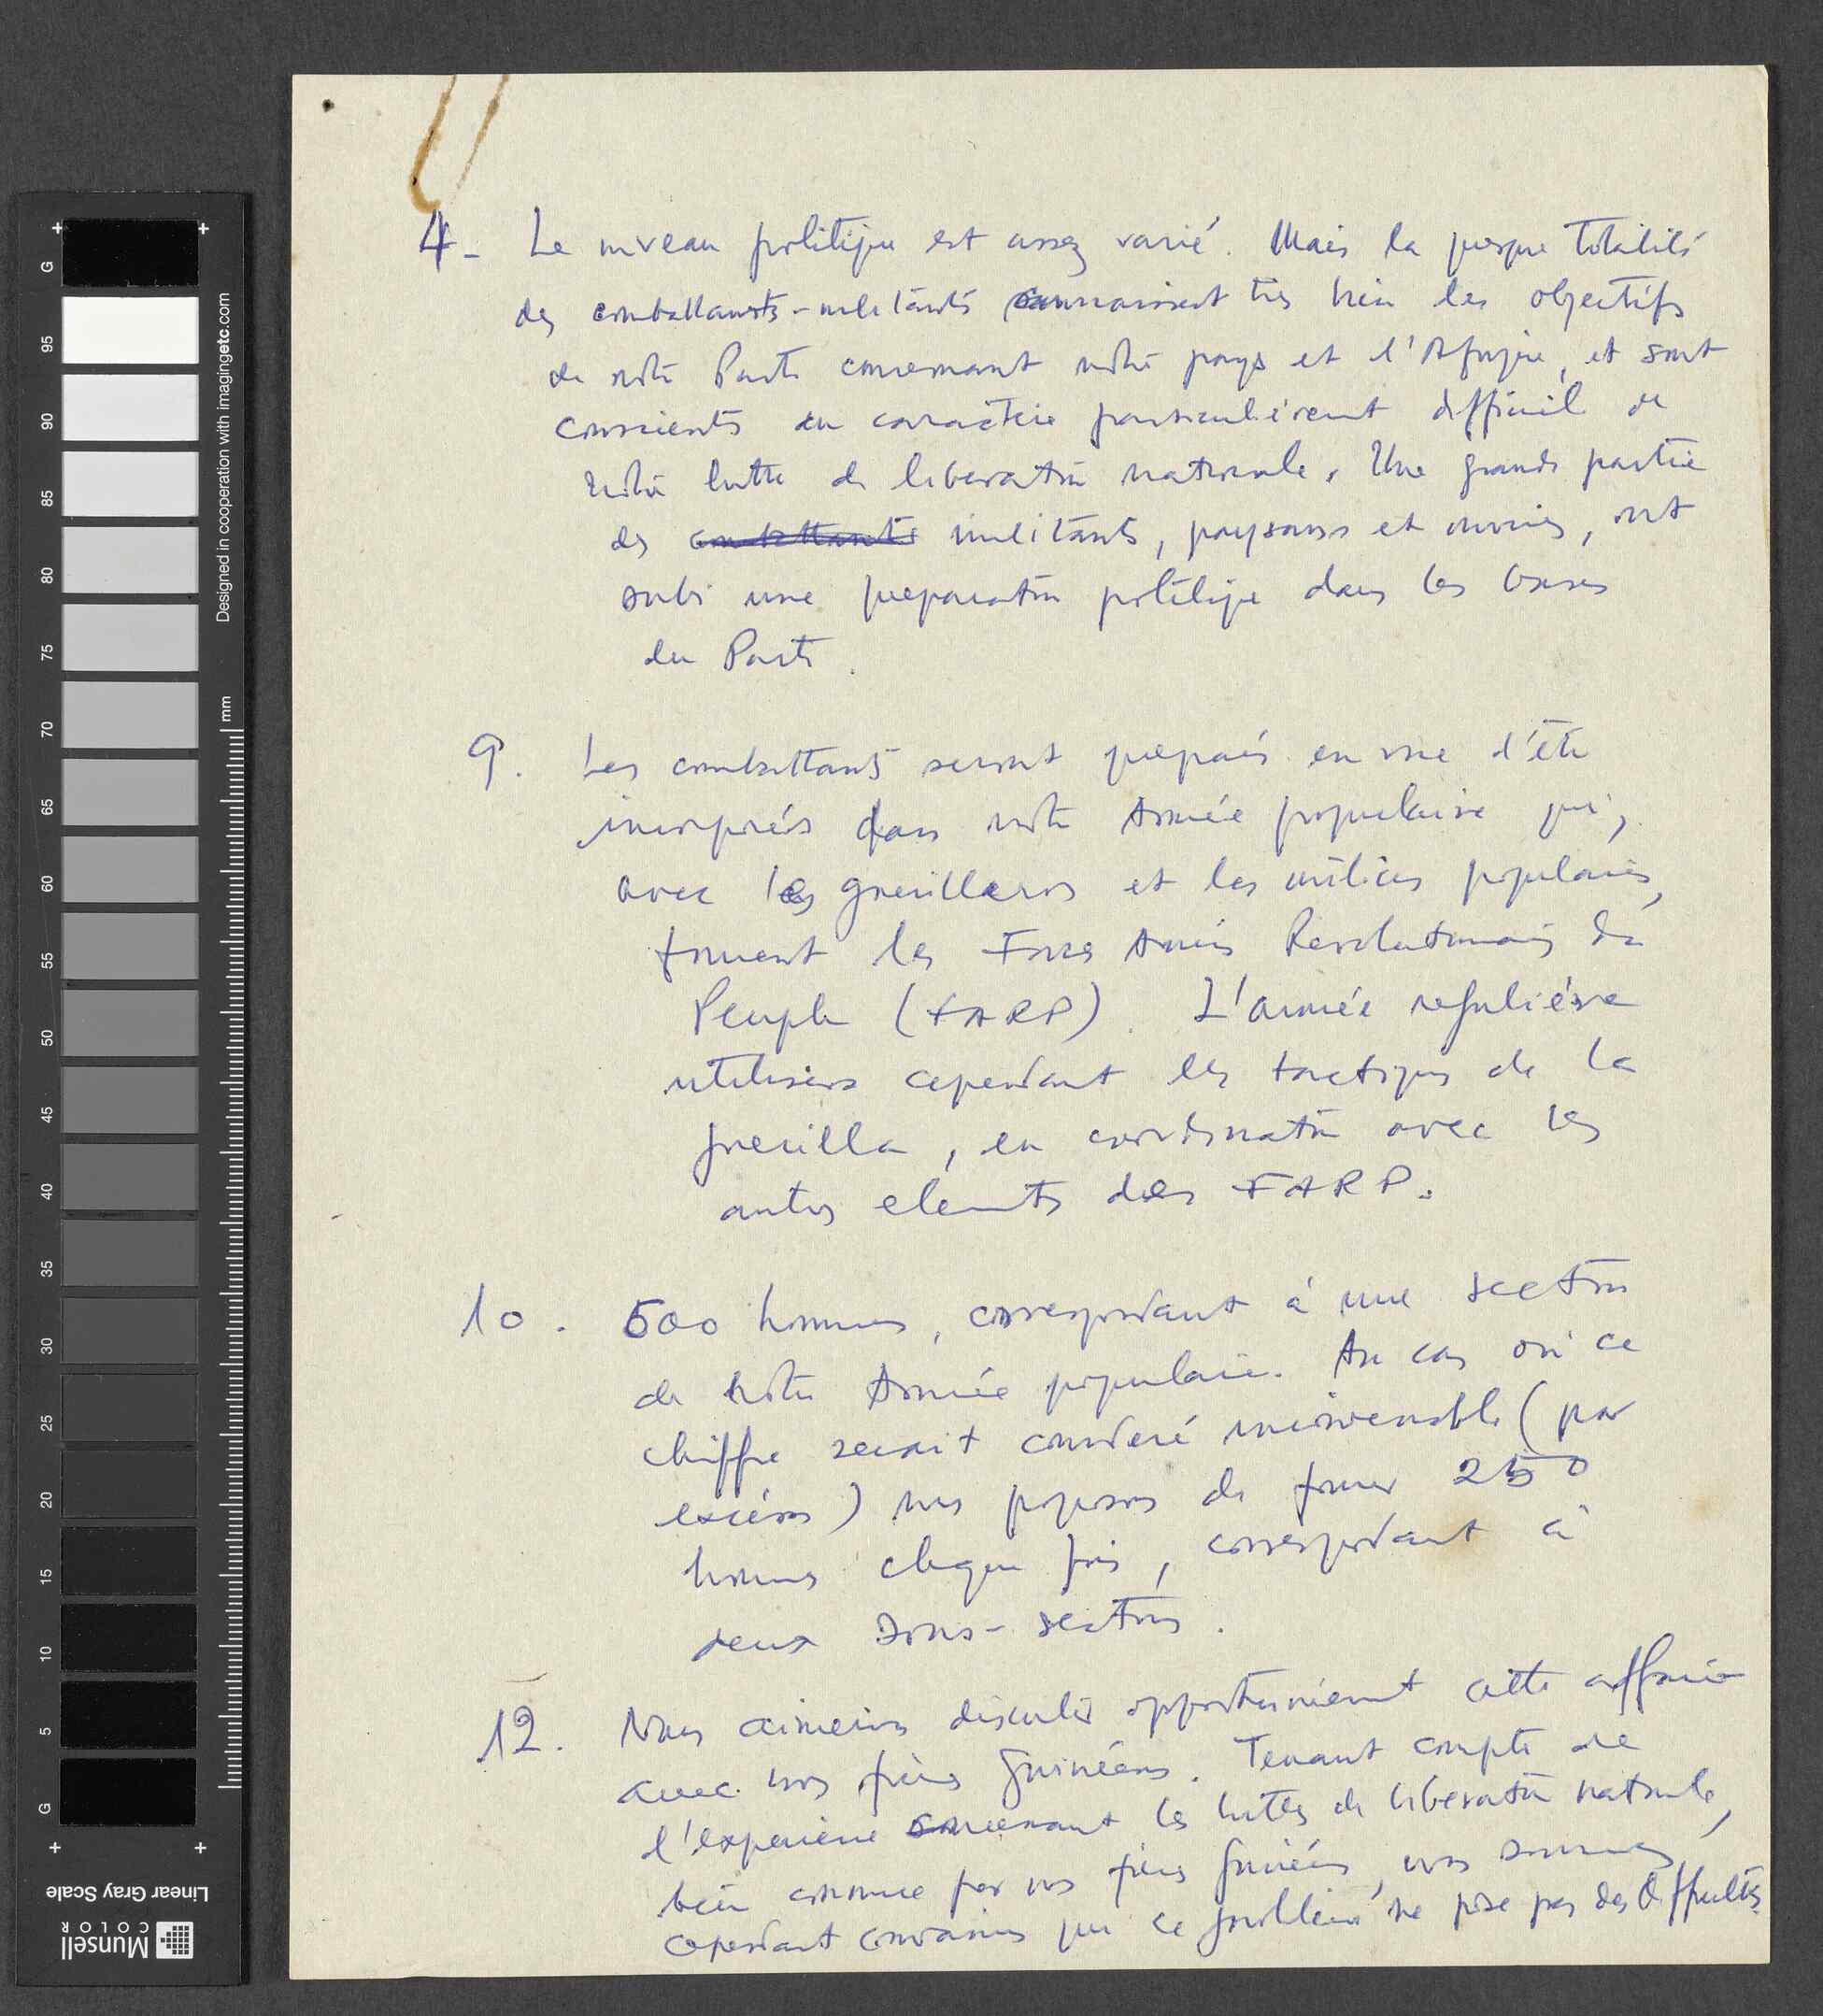 4- Le niveau politique est assez varié. Mais la presque totalité
des combattants-militants connaissent très bien les objectifs
de notre Parti concernant notre pays et l'Afrique, et sont
conscients du caractère particulièrement difficile de
notre lutte de liberation nationale. Une grande partie
des combattants militants, paysans et ouvriers, ont
subi une preparation politique dans les bases
du Parti.
9. Les combattants seront preparés en vue d'être
incorporés dans notre Armée populaire qui,
avec les guerilleros et les milices populaires,
forment les Forces Armées Revolutionnaires du
Peuple (FARP). L'armée regulière
utilisera cependant les tactiques de la
guerilla, en coordination avec les
autres elements des FARP.
10. 500 hommes, correspondant à une section
de notre Armée populaire. Au cas où ce
chiffre serait consideré inconvenable (par
excès) nous proposons de former 250
hommes chaque fois, correspondant à
deux sous-sections.
12. Nous aimerions discuter opportunément cette affaire
avec nos frères guinéens. Tenant compte de
l'experience concernant les luttes de liberation nationale,
bien connue par nos frères guinéens, nous sommes
cependant convaincus que ce problème ne pose pas des difficultés.
G 95 90 85 80 75 70 65 60 55 50 45 40 35 30 25 20 15 10 5 G
Designed in cooperation with imagingetc.com
mm
Linear Gray Scale
Munsell
COLOR